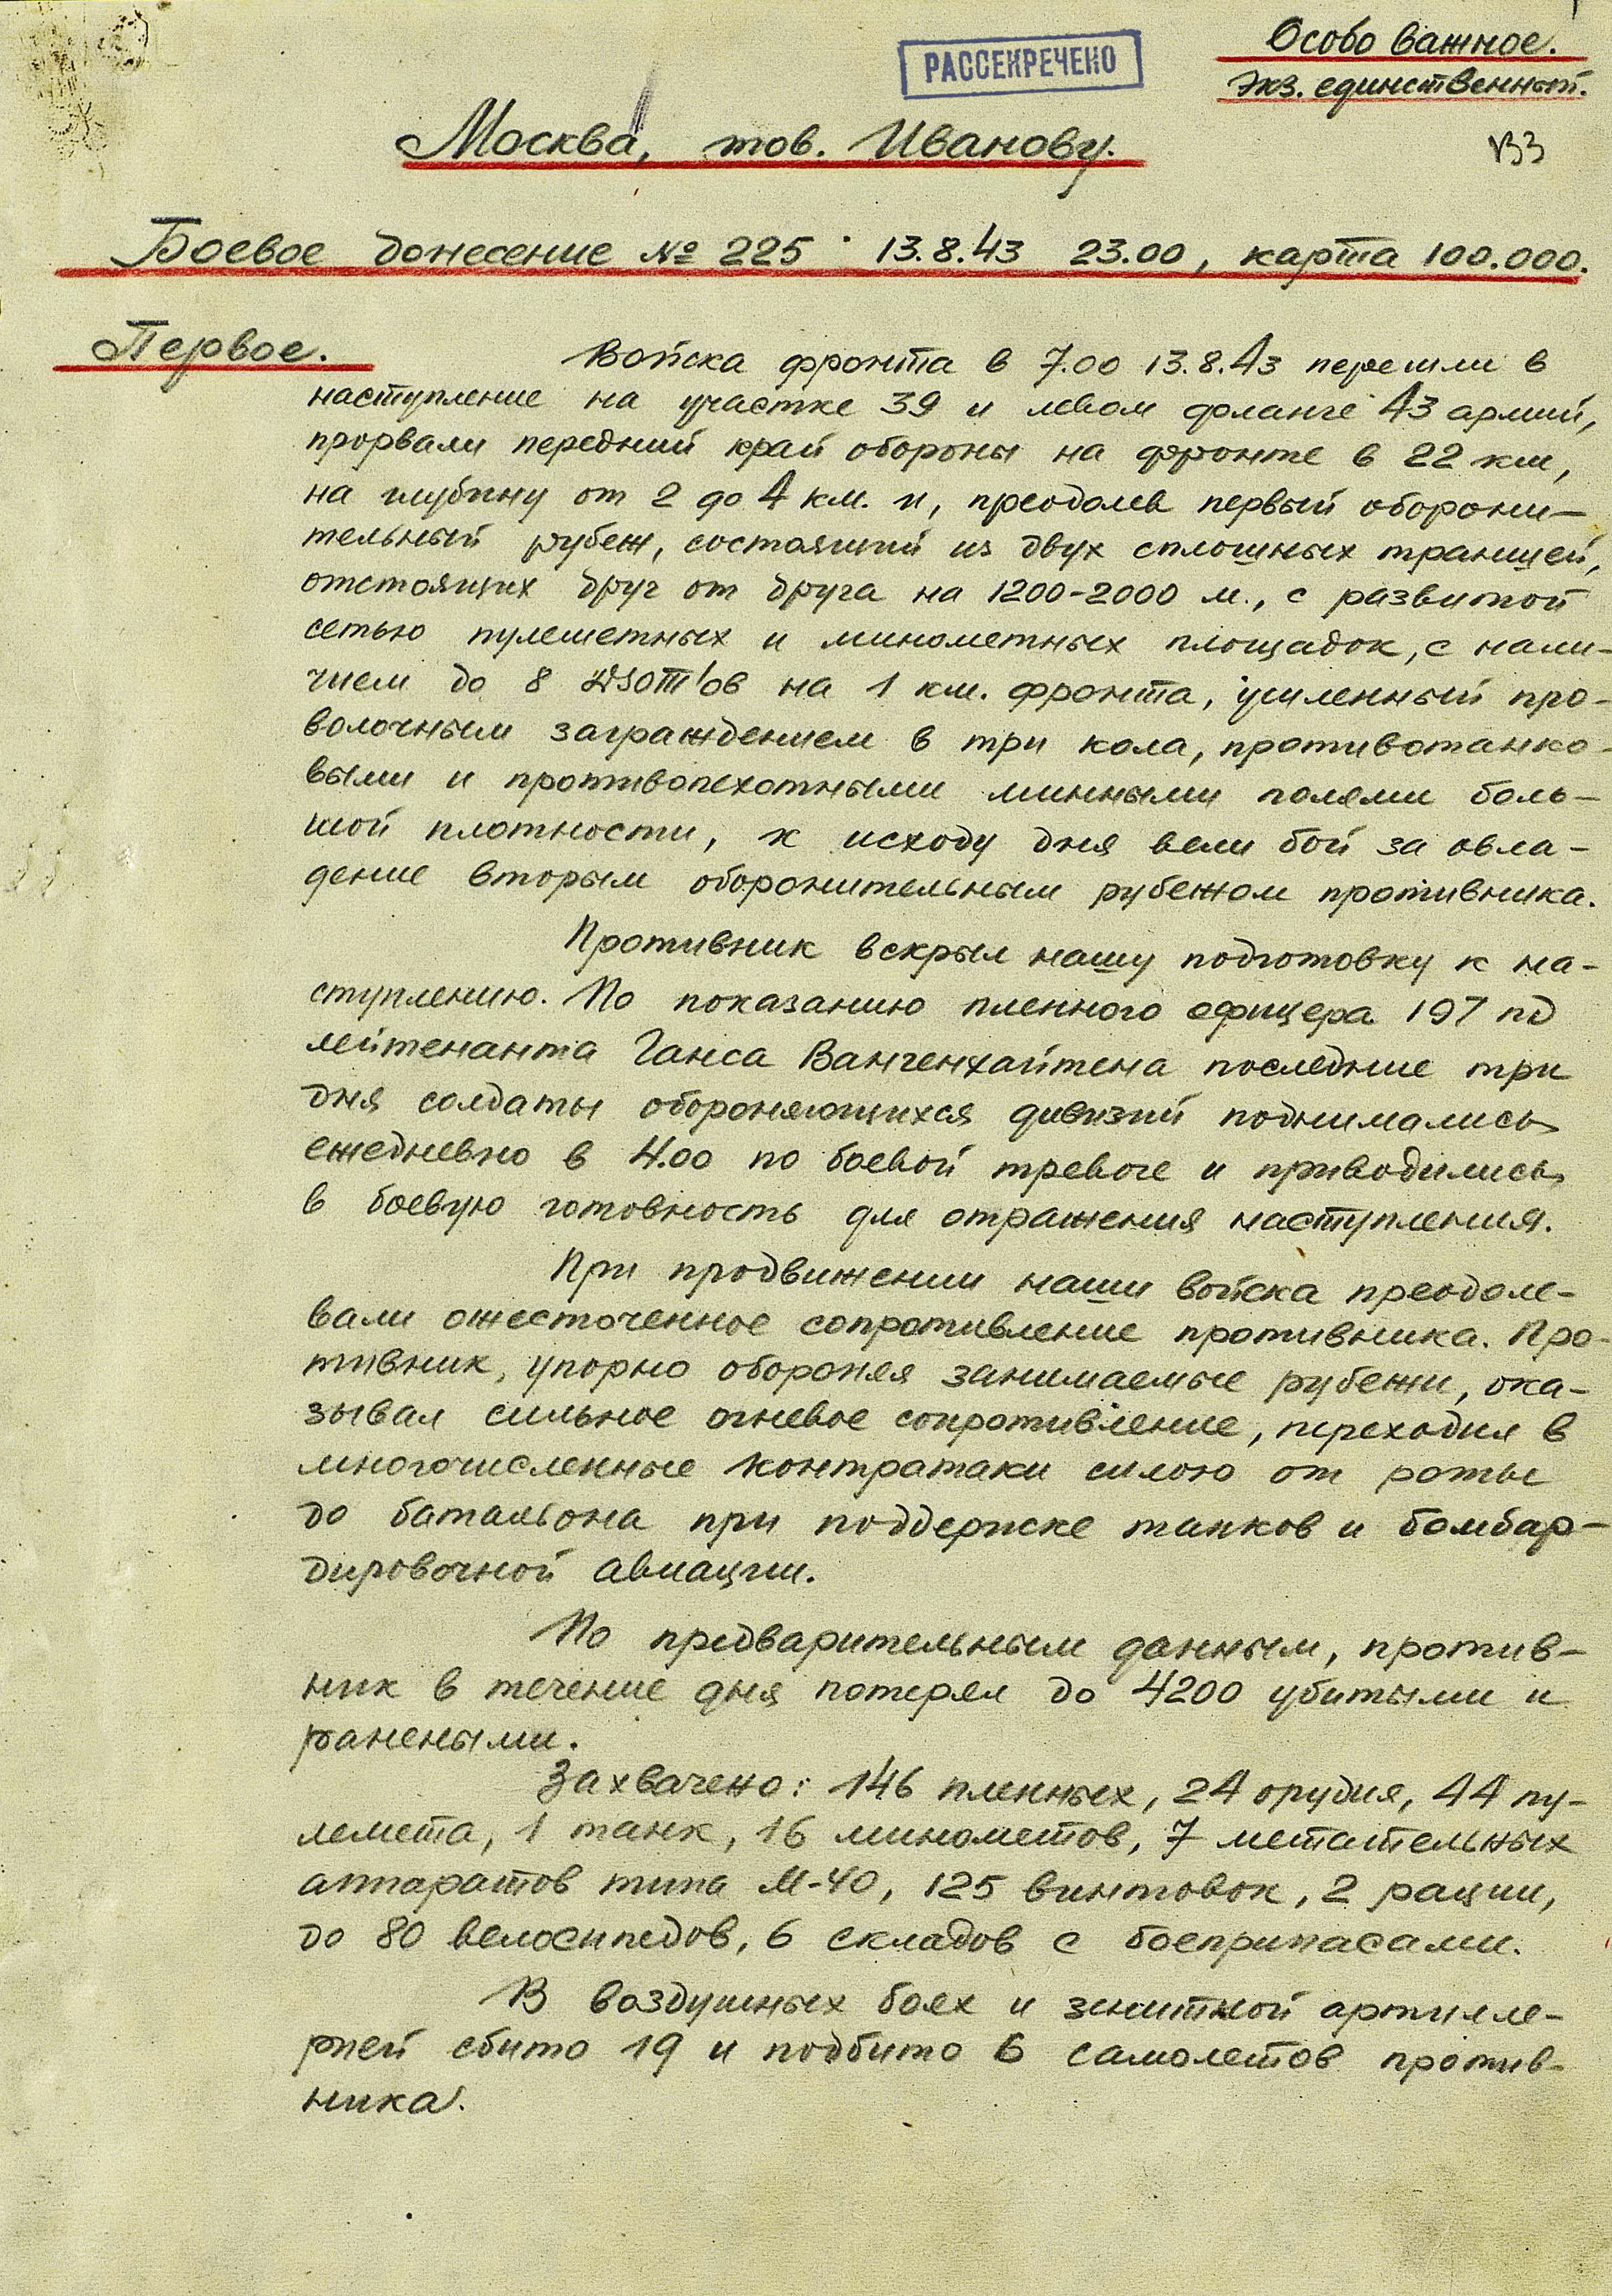 Особо важное.
РАССЕКРЕЧЕНО
Экз. единственный.
Москва, тов. Иванову.
Боевое донесение № 225 13.8.43 23.00, карта 100.000.
Первое.
Войска фронта в 7.00 13.8.43 перешли в
наступление на участке 39 и левом фланге 43 армий,
прорвали передний край обороны на фронте в 22 км,
на глубину от 2 до 4 км. и, преодолев первый оборони-
тельный рубеж, состоящий из двух сплошных траншей,
отстоящих друг от друга на 1200-2000 м., с развитой
сетью пулеметных и минометных площадок, с нали-
чием до 8 ДЗОТ'ов на 1 км. фронта, усиленный про-
волочным заграждением в три кола, противотанко-
выми и противопехотными минными полями боль-
шой плотности, к исходу дня вели бой за овла-
дение вторым оборонительным рубежом противника.
Противник вскрыл нашу подготовку к на-
ступлению. По показанию пленного офицера 197 пд
лейтенанта Ганса Вангенхайтена последние три
дня солдаты обороняющихся дивизий поднимались
ежедневно в 4.00 по боевой тревоге и приводились
в боевую готовность для отражения наступления.
При продвижении наши войска преодоле-
вали ожесточенное сопротивление противника. Про-
тивник, упорно обороняя занимаемые рубежи, ока-
зывал сильное огневое сопротивление, переходил в
многочисленные контратаки силою от роты
до батальона при поддержке танков и бомбар-
дировочной авиации.
По предварительным данным, против-
ник в течение дня потерял до 4200 убитыми и
ранеными.
Захвачено: 146 пленных, 24 орудия, 44 пу-
лемета, 1 танк, 16 минометов, 7 метательных
аппаратов типа М-40, 125 винтовок, 2 рации,
до 80 велосипедов, 6 складов с боеприпасами.
В воздушных боях и зенитной артилле-
рией сбито 19 и подбито 6 самолетов против-
ника.